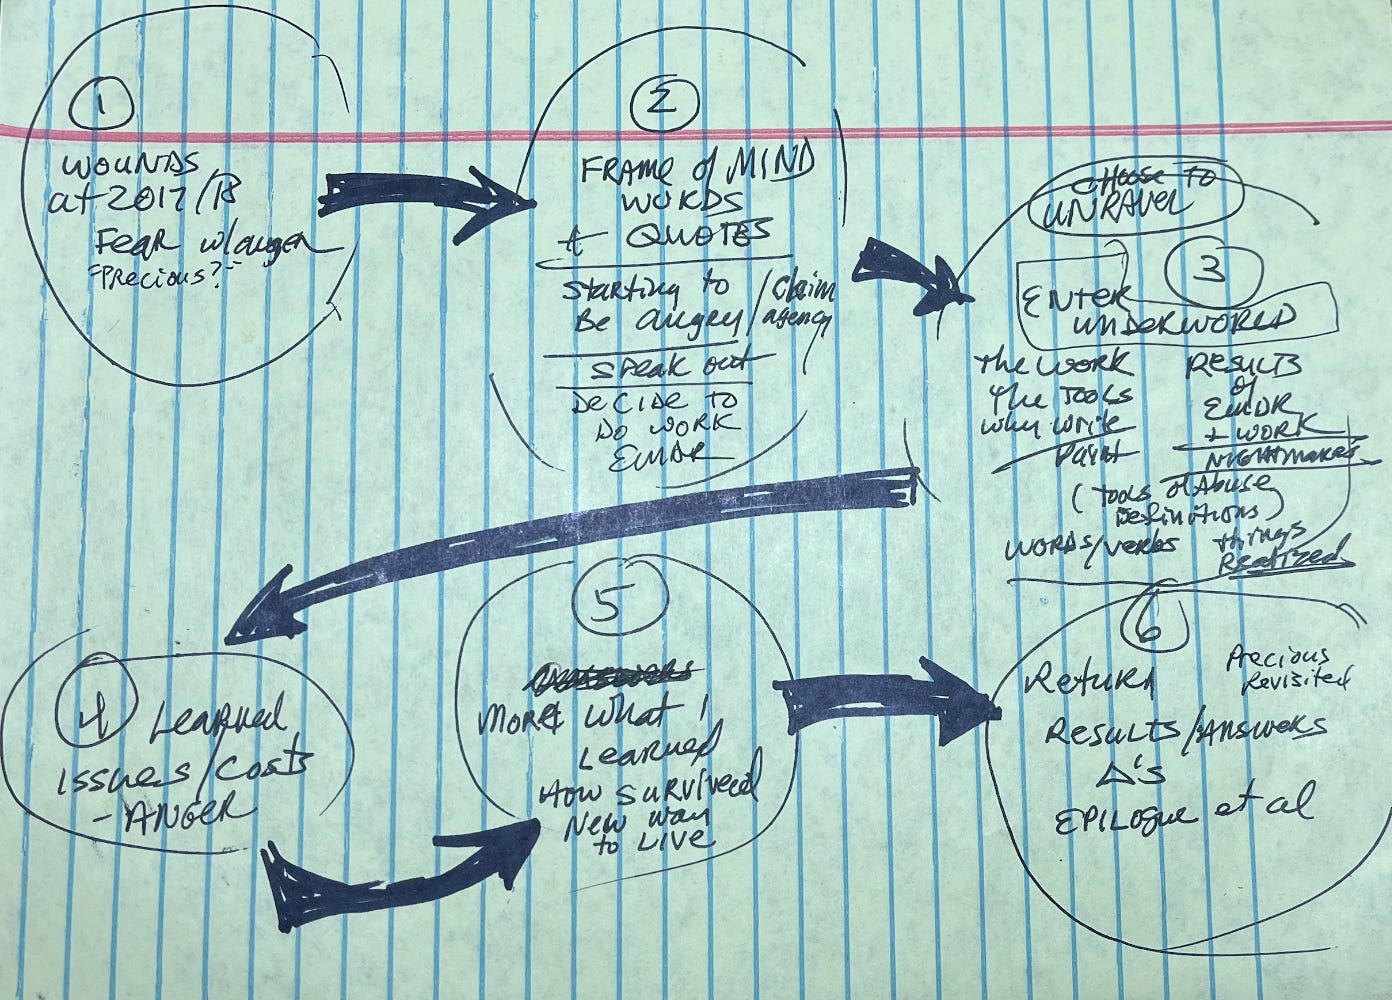 1
WOUNDS
at 2017/18
FEAR w/anger
"Precious?"
2
FRAME of MIND
WORDS
+ QUOTES
Starting to / claim
Be angry / agency
Speak out
DECIDE TO
DO WORK
EMDR
CHOOSE TO
UNRAVEL
3
ENTER
UNDERWORLD
the WORK
the TOOLS
why write
Paint
RESULTS
of
EMDR
+ WORK
NIGHTMARES
(TOOLS of Abuse
Definitions)
WORDS/verbs
things
Realized
4
Learned
issues/costs
- ANGER
5
MORE what I
Learned
How survived
New way
to LIVE
6
Return
Precious
Revisited
RESULTS/ANSWERS
Δ's
EPILOGUE et al